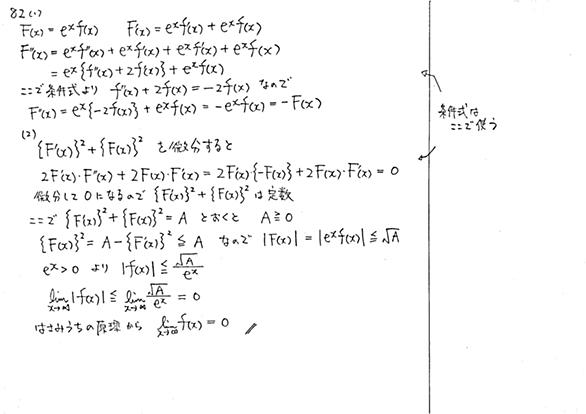 82(1)
F(x) = e^x f(x)  F'(x) = e^x f'(x) + e^x f(x)
F''(x) = e^x f''(x) + e^x f'(x) + e^x f'(x) + e^x f(x)
= e^x {f''(x) + 2f'(x)} + e^x f(x)
ここで条件式より f''(x) + 2f'(x) = -2f(x) なので
F''(x) = e^x {-2f(x)} + e^x f(x) = -e^x f(x) = -F(x)
(2)
{F'(x)}^2 + {F(x)}^2 を微分すると
2F'(x)・F''(x) + 2F(x)・F'(x) = 2F'(x)・{-F(x)} + 2F(x)・F'(x) = 0
微分して0になるので {F'(x)}^2 + {F(x)}^2 は定数
ここで {F'(x)}^2 + {F(x)}^2 = A とおくと A ≧ 0
{F(x)}^2 = A - {F'(x)}^2 ≦ A なので |F(x)| = |e^x f(x)| ≦ √A
e^x > 0 より |f(x)| ≦ √A/e^x
lim x→∞ |f(x)| ≦ lim x→∞ √A/e^x = 0
はさみうちの原理から lim x→∞ f(x) = 0
条件式は
ここで使う